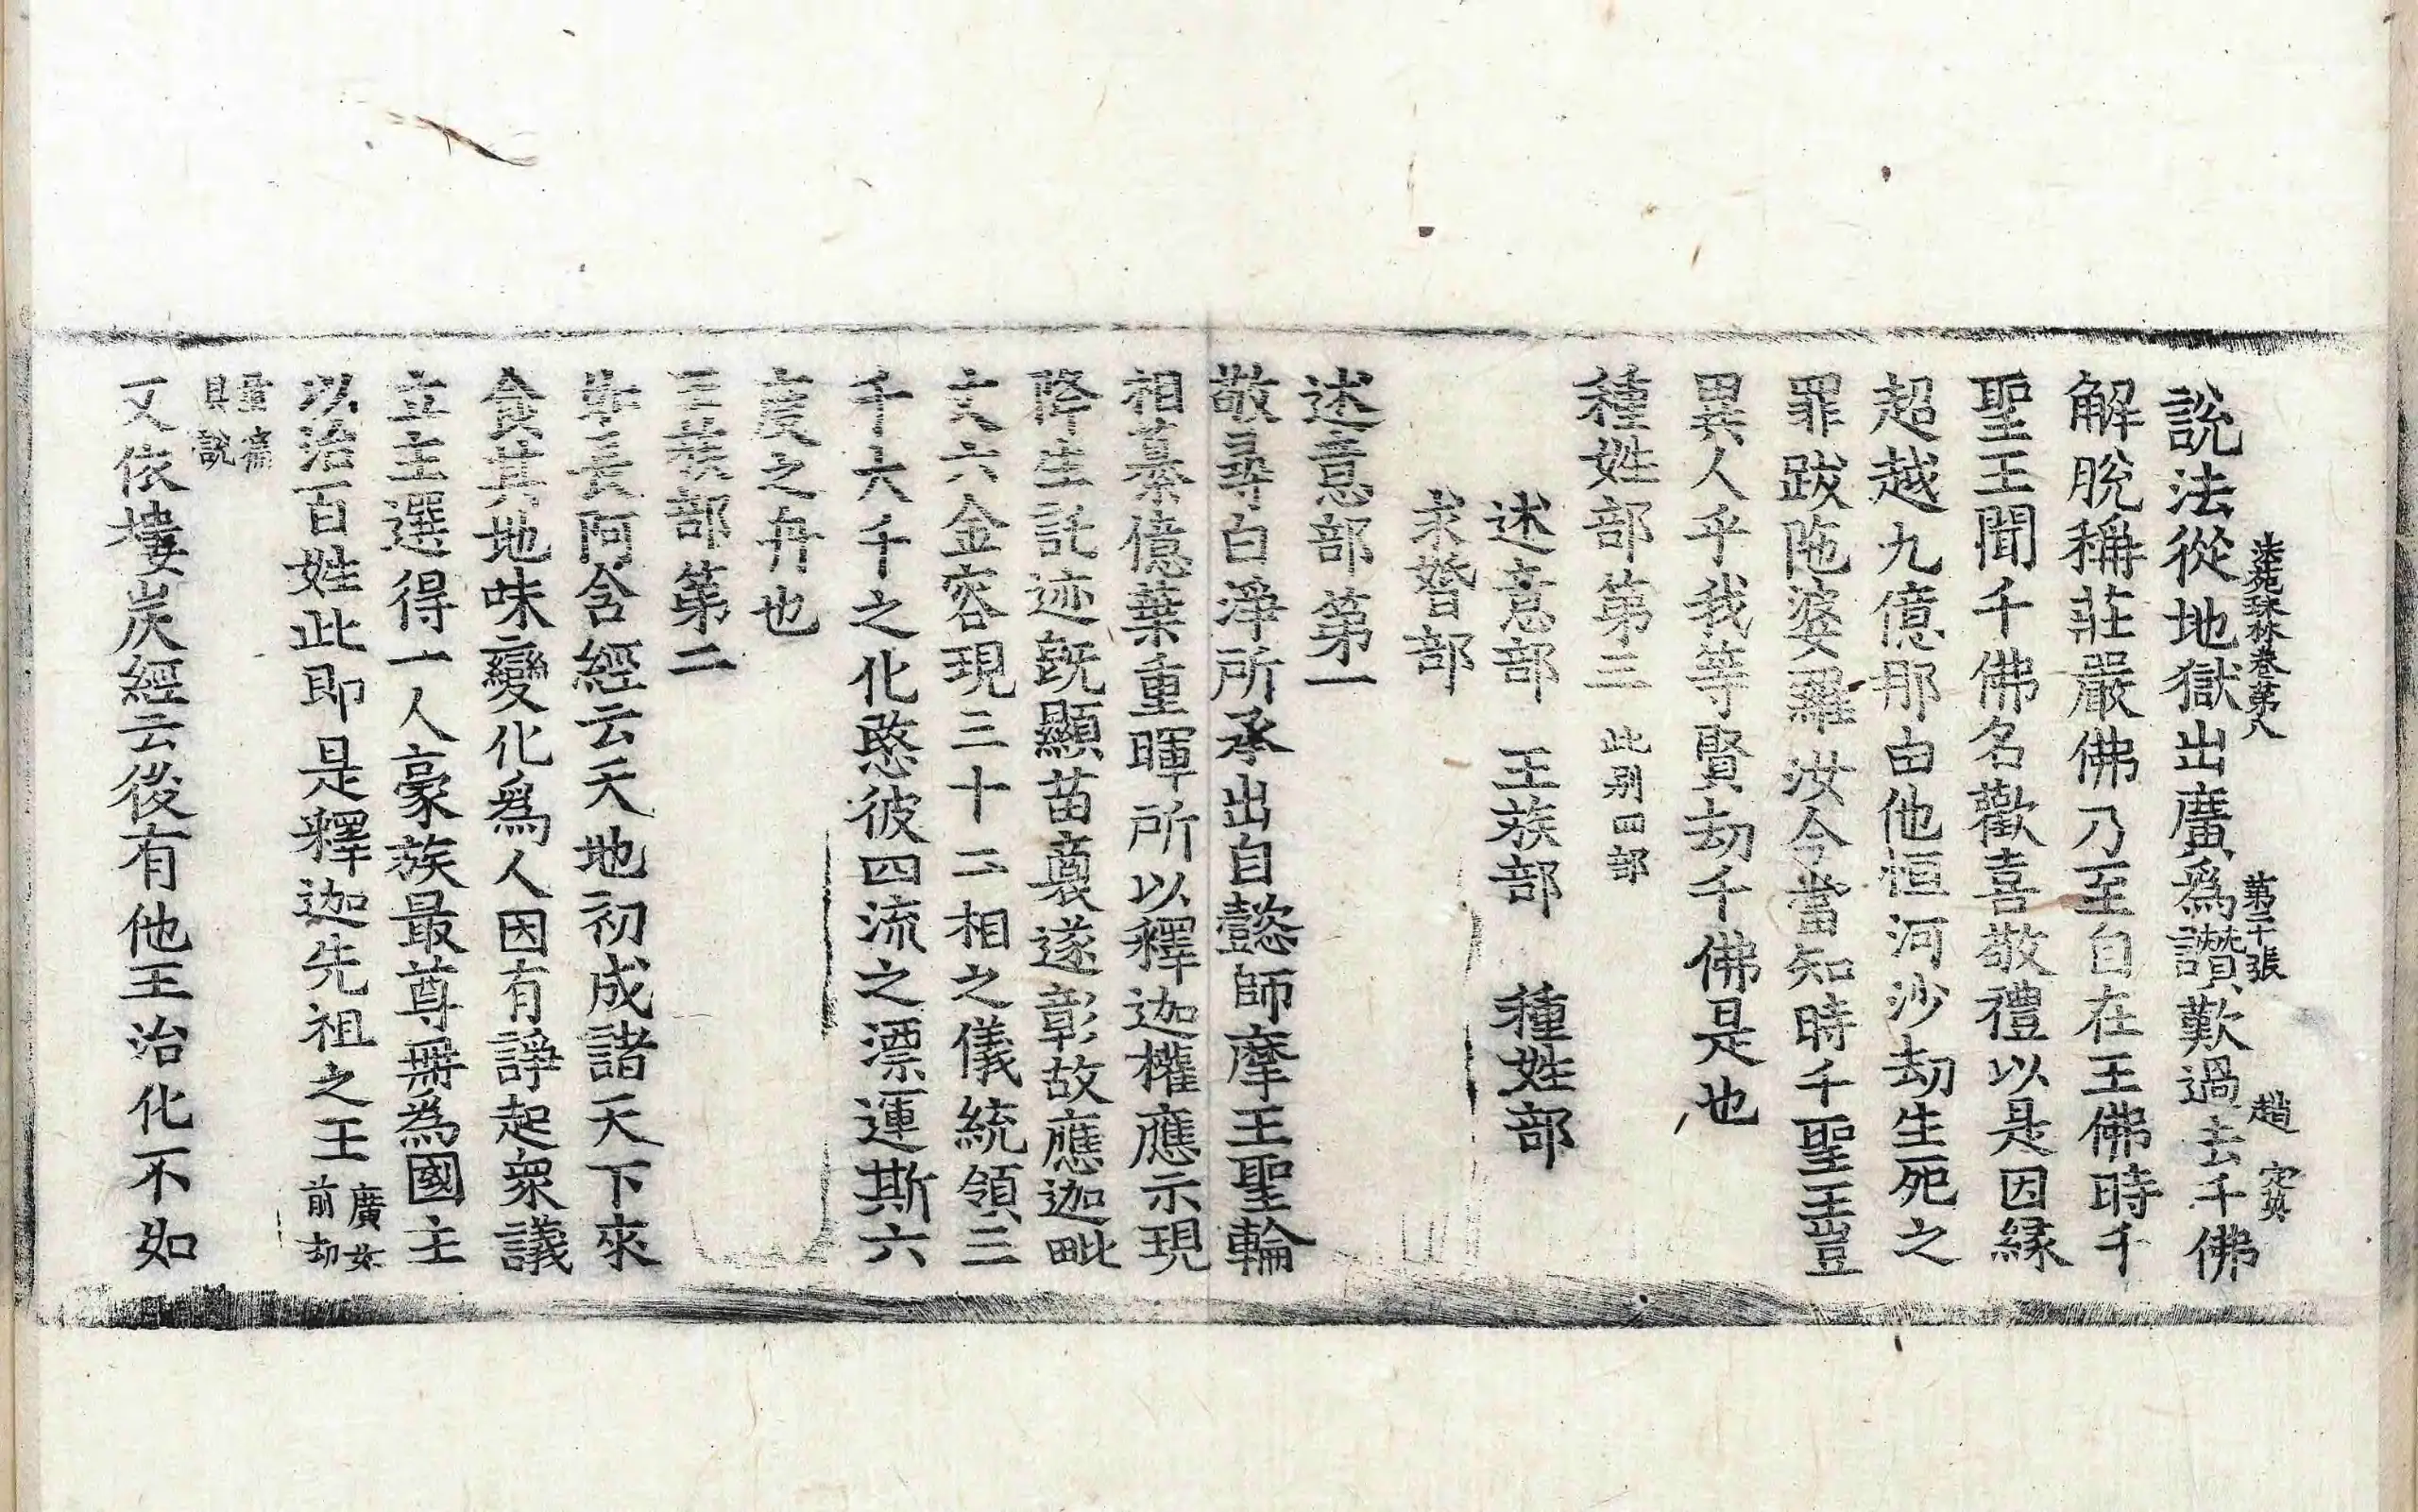 法苑珠林卷第八 第二十張 趙 定英
說法從地獄出廣爲讚歎過去千佛
解脫稱莊嚴佛乃至自在王佛時千
聖王聞千佛名歡喜敬禮以是因緣
超越九億那由他恒河沙劫生死之
罪跋陁婆羅汝今當知時千聖王豈
異人乎我等賢劫千佛是也
種姓部第三 此別四部
述意部 王族部 種姓部
求婚部
述意部第一
敬尋白淨所承出自懿師摩王聖輪
相纂億葉重暉所以釋迦權應示現
降生託迹旣顯苗裔遂彰故應迦毗
丈六金容現三十二相之儀統領三
千大千之化愍彼四流之漂運斯六
度之舟也
王族部第二
如長阿含經云天地初成諸天下來
食其地味變化爲人因有諍起衆議
立主選得一人豪族最尊舉為國主
以治百姓此即是釋迦先祖之王 廣如前劫
量齋具說
又依樓炭經云後有他王治化不如